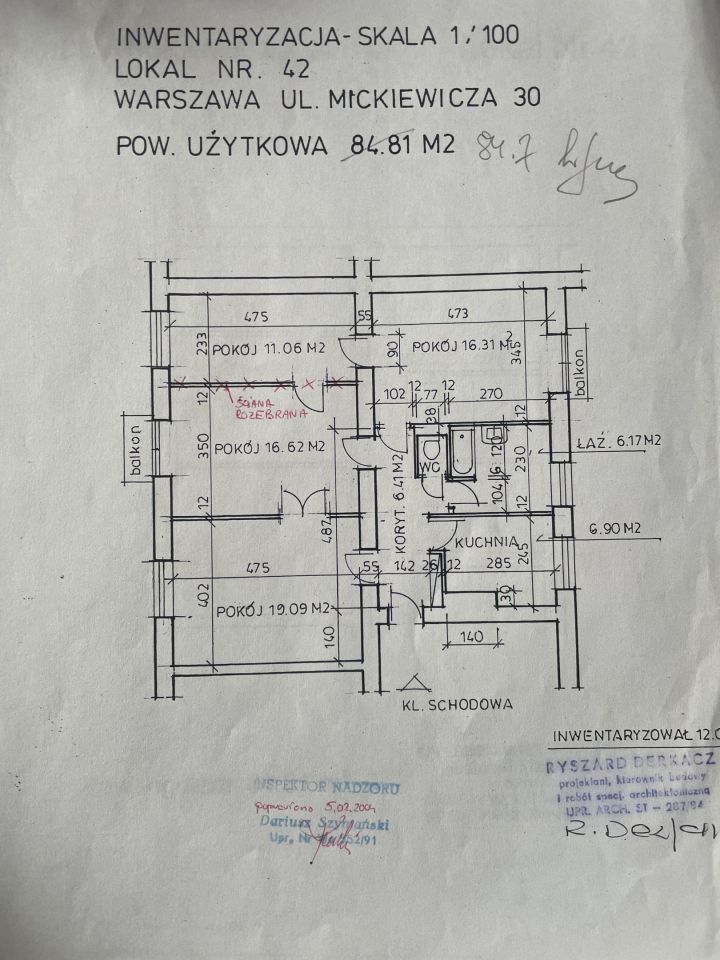 INWENTARYZACJA - SKALA 1:100
LOKAL NR. 42
WARSZAWA UL. MICKIEWICZA 30
POW. UŻYTKOWA 84.81 M2 84.7
475 55 473
233 POKÓJ 11.06 M2 90 POKÓJ 16.31 M2 345 balkon
12 102 12 77 12 270
ŚCIANA
ROZEBRANA
38 12
balkon 350 POKÓJ 16.62 M2 WC 120 230 ŁAŹ. 6.17 M2
KORYT. 6.41 M2 16
12 487 104 12
6.90 M2
KUCHNIA 245
475 55 142 26 12 285
402 POKÓJ 19.09 M2 30
140 140
KL. SCHODOWA
INWENTARYZOWAŁ 12.
RYSZARD DERKACZ
projektant, kierownik budowy
i robót specj. architektoniczną
UPR. ARCH. ST - 287/84
INSPEKTOR NADZORU
poprawiono 5.02.2004
Dariusz Szymański
Upr. Nr 52/91